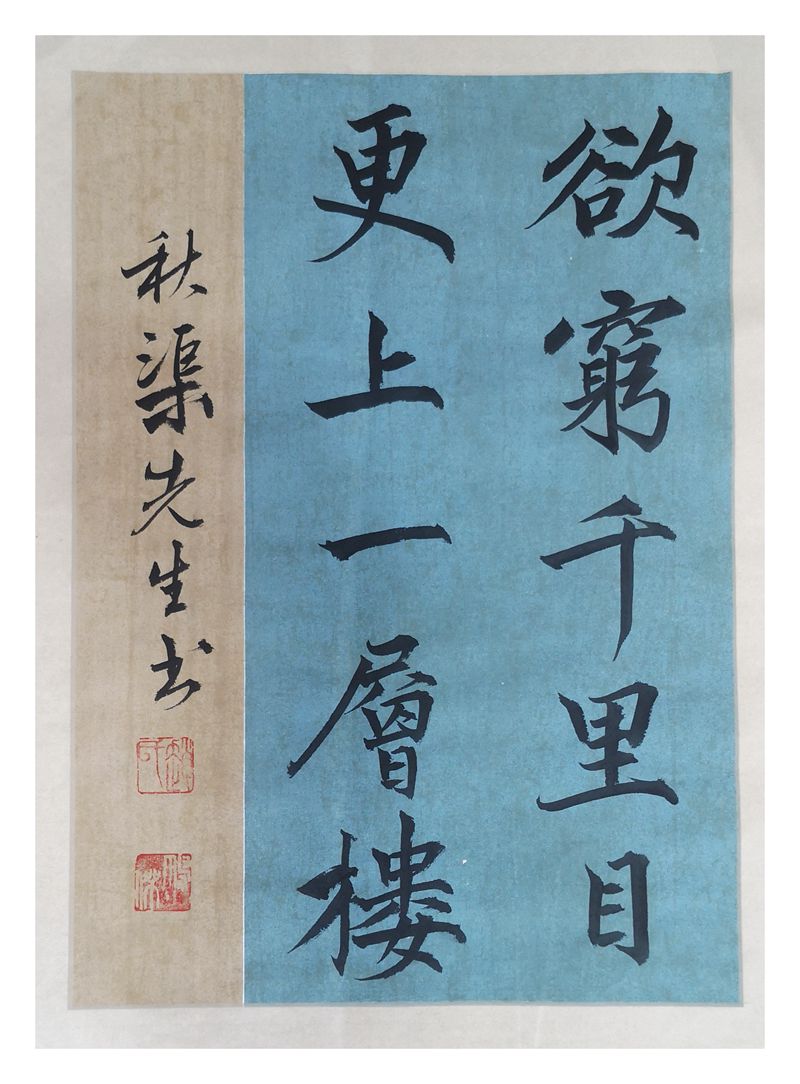 欲窮千里目
更上一層樓
秋渠先生书